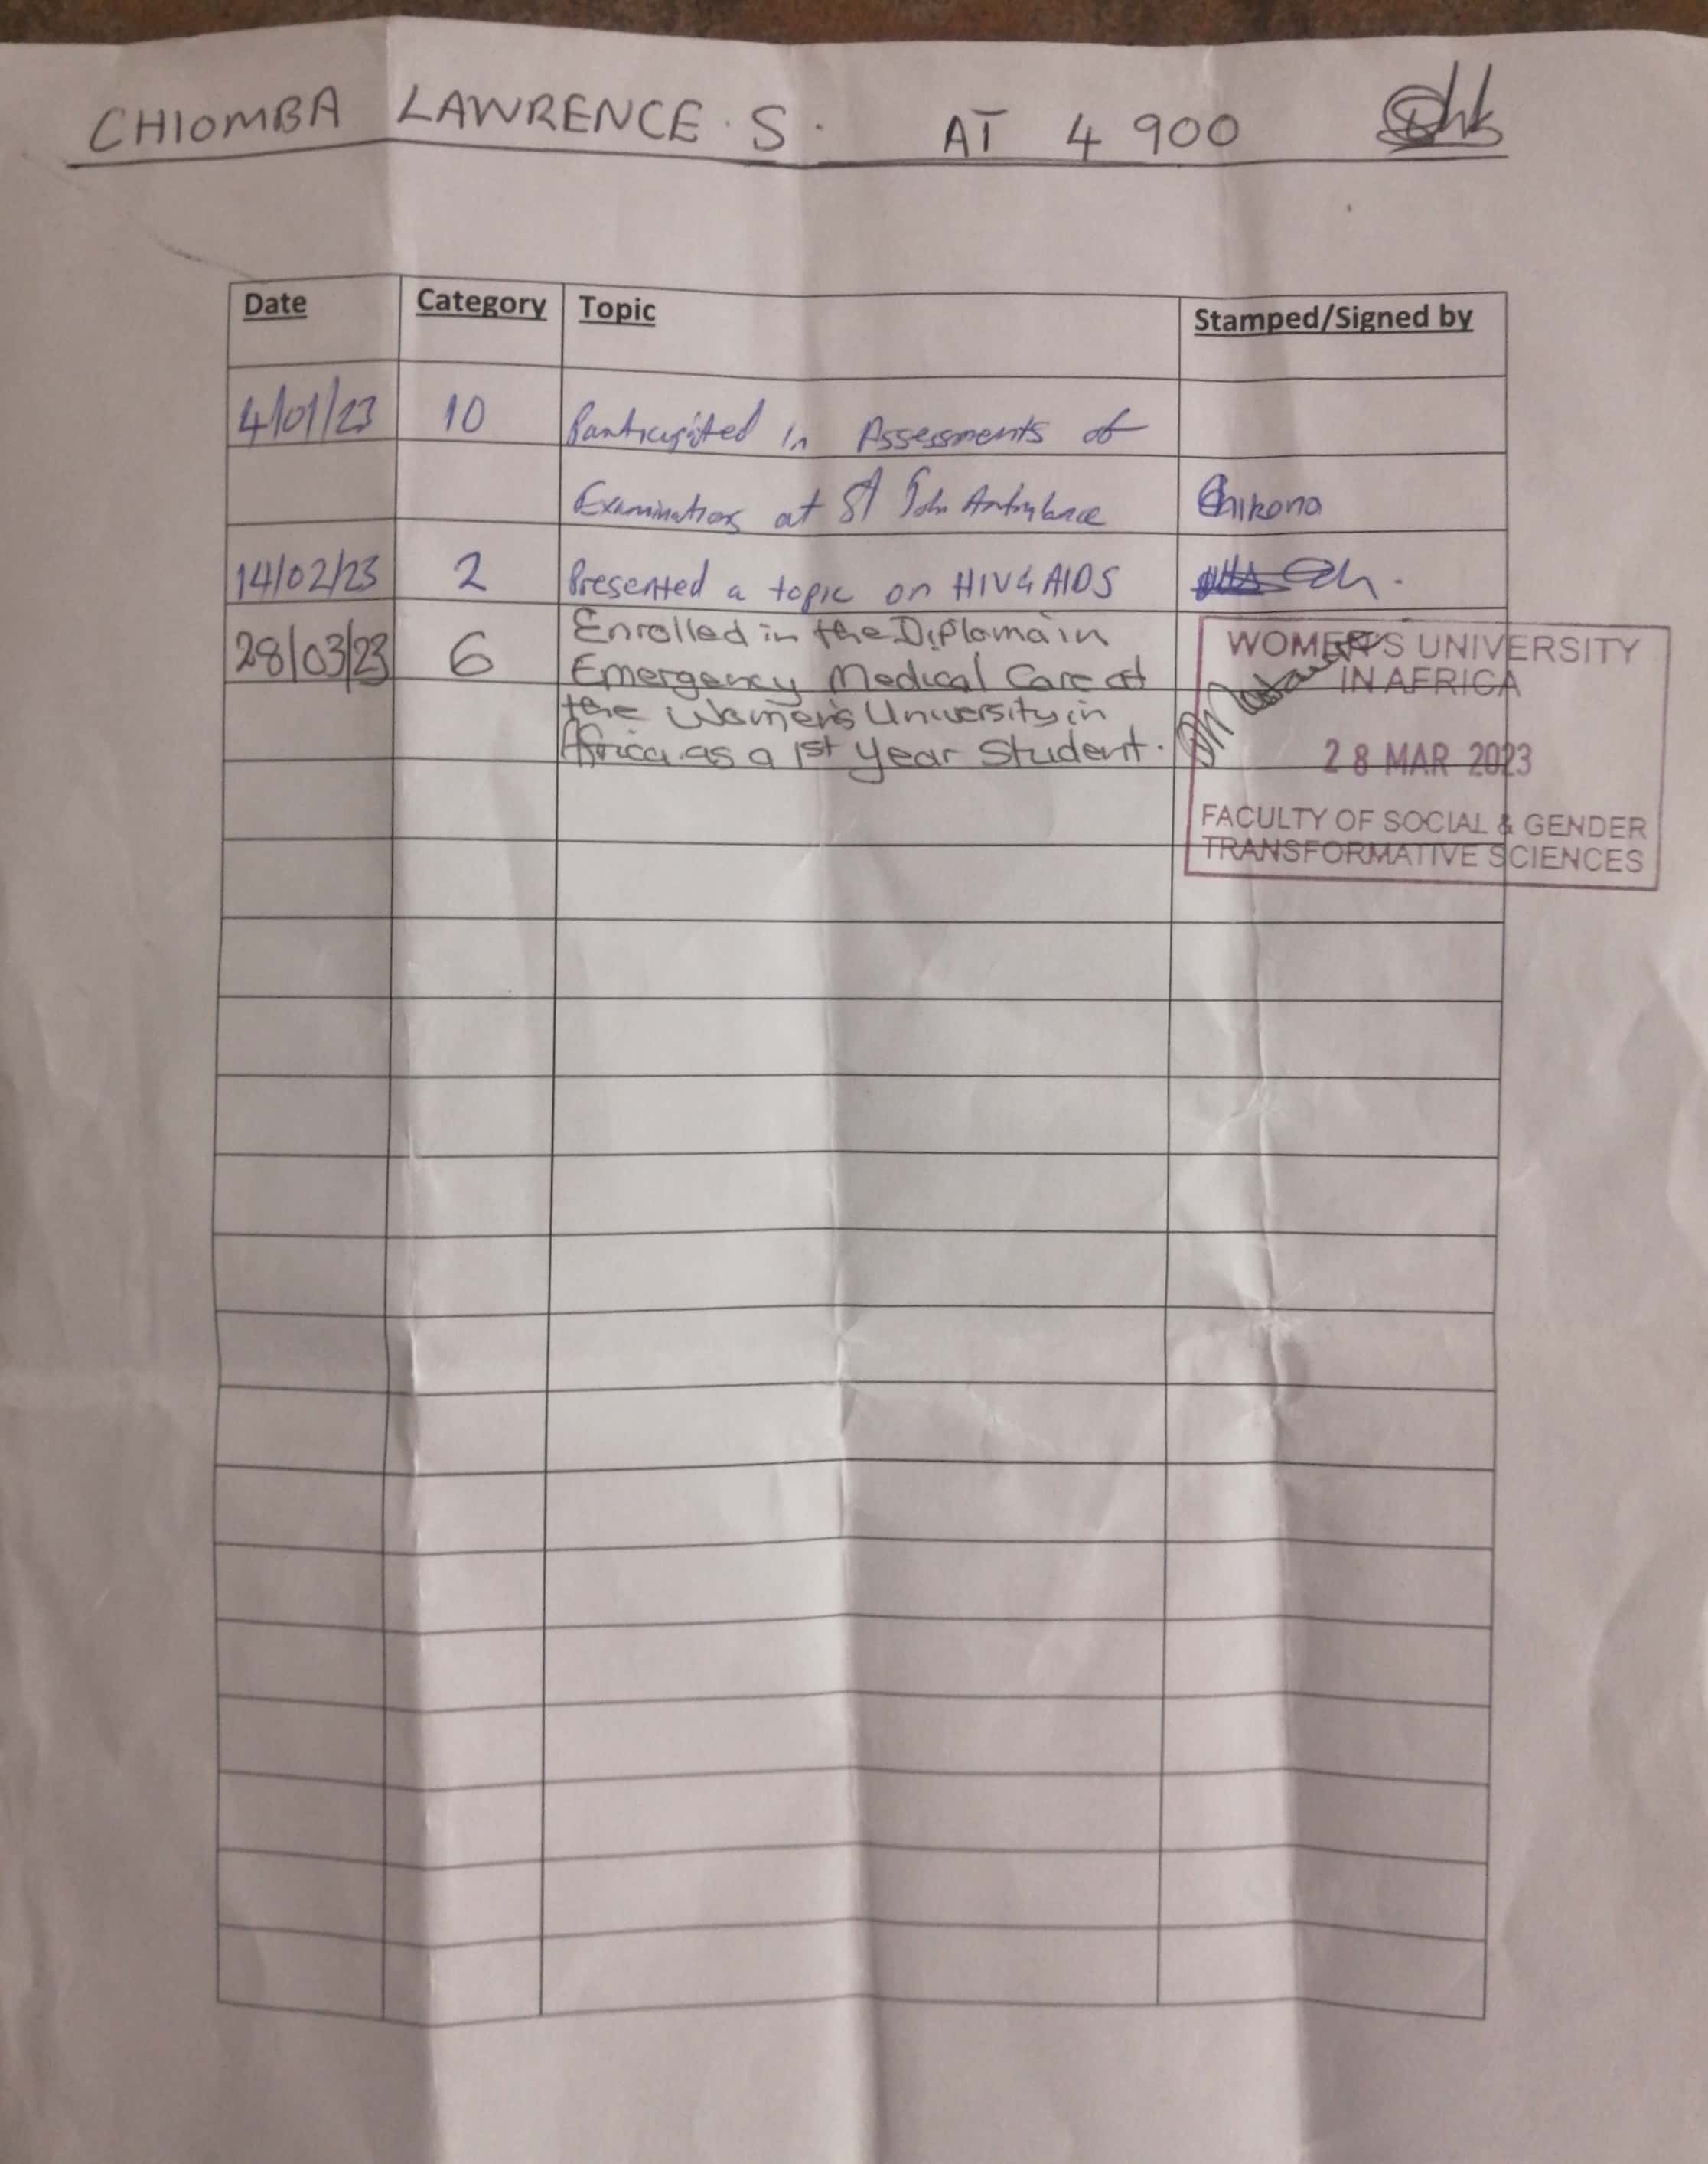 CHIOMBA LAWRENCE. S. AT 4 900
Date Category Topic Stamped/Signed by
4/01/23 10 Participated in Assessments of
Examinations at St John Ambulance Chikona
14/02/23 2 Presented a topic on HIV & AIDS
28/03/23 6 Enrolled in the Diploma in
Emergency Medical Care at
the Women's University in
Africa as a 1st year Student.
WOMEN'S UNIVERSITY
IN AFRICA
28 MAR 2023
FACULTY OF SOCIAL & GENDER
TRANSFORMATIVE SCIENCES